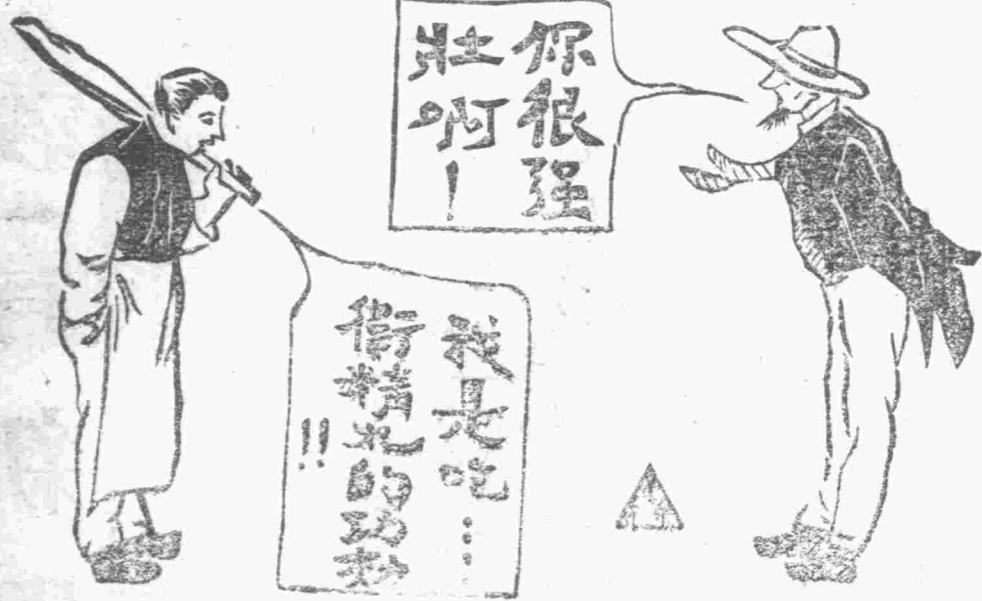 你很强
壯啊！
我是吃……
衛精丸的功効
!!